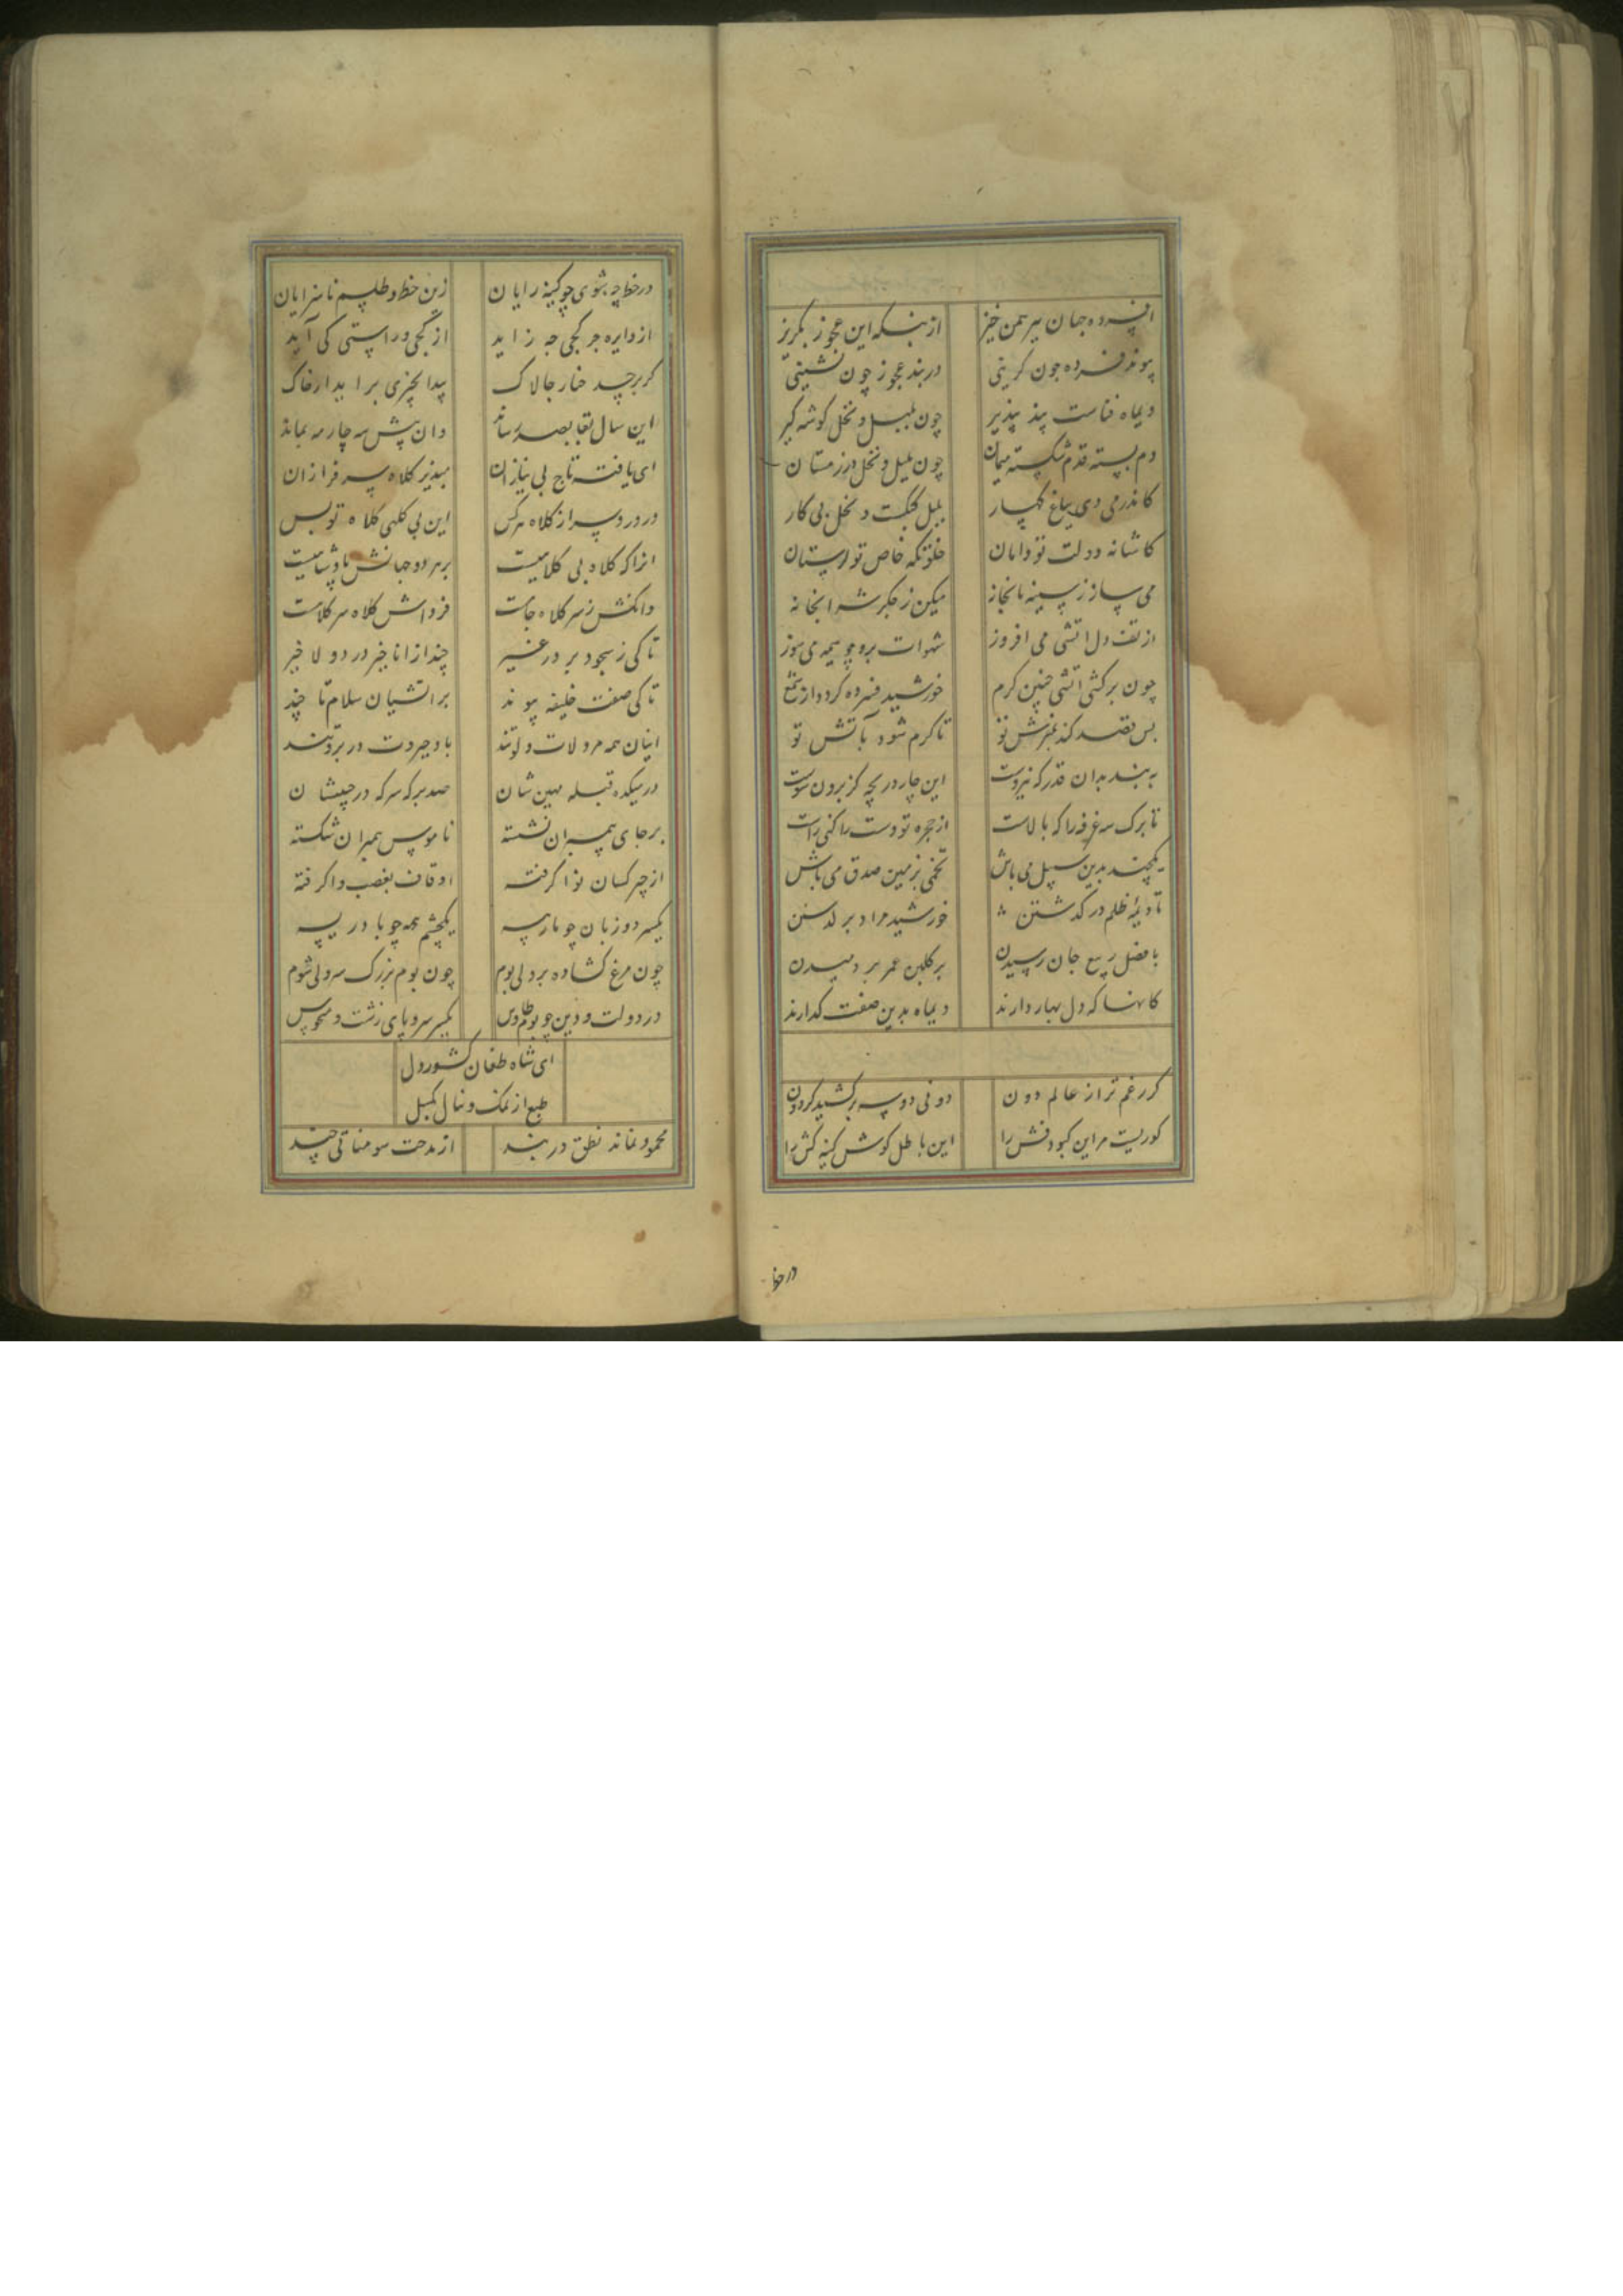 افسرده جهان پیر بهمن خیز از بنکه این عجوز بگریز
پیوند فسرده چون گزینی در بند عجوز چون نشینی
دیماه فناست پند پذیر چون بلبل و نخل گوشه گیر
دم بسته قدم شکسته میمان چون بلبل و نخل در زمستان
کاندر می دی بباغ کهسار بلبل گنگست و نخل بی کار
کاشانه دولت تو دامان خلوتگه خاص تو
می ساز ز سینه نابخانه میکن ز جگر شرابخانه
از تف دل اتشی می افروز شهوات برو چو هیمه می سوز
چون برکشی اتشی چنین کرم خورشید فسرده کردد از
بس قصد کند تو تا کرم شود بآتش تو
به بند بدان قدر که نیروست این چار دریچه کز برون سوست
تا برک سه غرفه را که بالاست از حجره تو دست را کنی راست
یکچند بدین سبیل می باش تخمی بزمین صدق می پاش
تا دیمه ظلم در گذشتن خورشید مراد بر
با فصل ربیع جان رسیدن بر گلبن عمر بر دمیدن
کانها که دل بهار دارند دیماه بدین صفت گذارند
گر رغم ترا ز عالم دون دونی دو سه برکشید گردون
کوریست مر این کبودفش را این باطل کوش کینه کش را
در خط
در خط چه شوی چو کینه رایان زین خط و طلسم ناسزایان
از دایره جز کجی چه زاید از کجی در راستی کی آید
گر برچد خار چالاک پیدا بچزی براید از خاک
این سال بقا بصد رساند وان پیش سه چار مه نماند
ای یافته تاج بی نیازان مپذیر کلاه سرفرازان
در دزد سر از کلاه هر کس این بی کلهی کلاه تو بس
انرا که کلاه بی کلاهیست بر هر دو جهانش پادشاهیست
وانکش ز سر کلاه جاست فرداش کلاه سر کلاست
تا کی ز سجود بر در غیر چند از انا خیر در دو لا خیر
تا کی صفت خلیفه پیوند بر اتشیان سلام تا چند
اینان همه مرد لات و لوتند با و جبروت در بروتند
در میکده قبله مهین شان صد برکه سرکه در جبینشان
بر جای پیمبران نشسته ناموس پیمبران شکسته
از چیز کسان نوا گرفته اوقاف بغصب وا گرفته
یکسر دو زبان چو مار سه یکچشم همه چو با در سه
چون مرغ گشاده بر ولی بوم چون بوم بزرک سر ولی شوم
در دولت و دین چو بوم و طاوس یکسر سر و پای زشت و منحوس
ای شاه طغان کشور دل
طبع از نمک و بکسل
محمود نماند نطق در بند از مدحت سومناتی چند